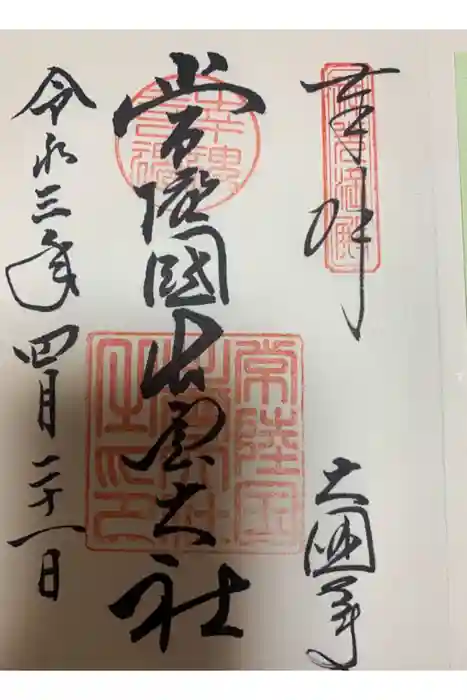 奉拝
大国主
常陸國出雲大社
常陸國出雲大社之印
令和三年四月二十一日